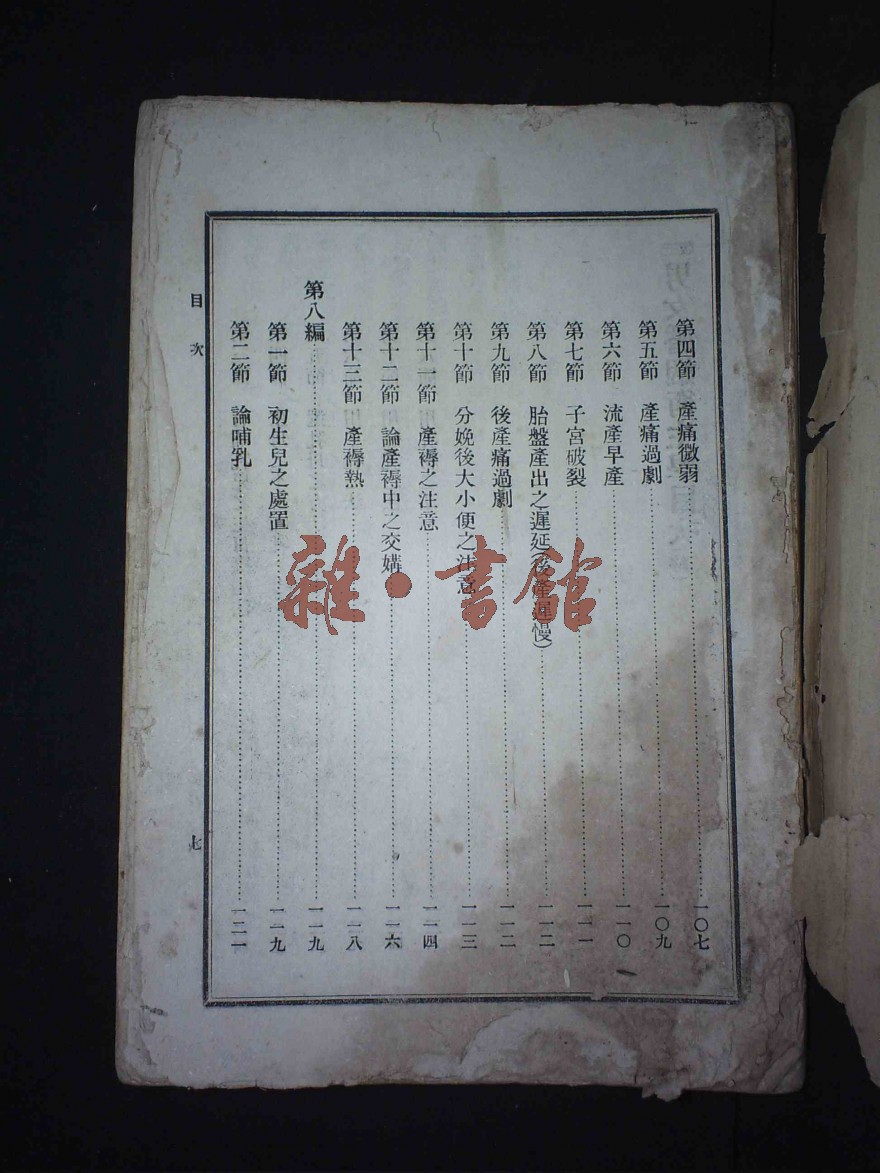 第四節 產痛微弱……一〇七
第五節 產痛過劇……一〇九
第六節 流產早產……一一〇
第七節 子宮破裂……一一一
第八節 胎盤產出之遲延(後產遲慢)……一一二
第九節 後產痛過劇……一一二
第十節 分娩後大小便之注意……一一三
第十一節 產褥之注意……一一四
第十二節 論產褥中之交媾……一一六
第十三節 產褥熱……一一八
第八編……一一九
第一節 初生兒之處置……一一九
第二節 論哺乳……一二一
目次
七
雜·書館